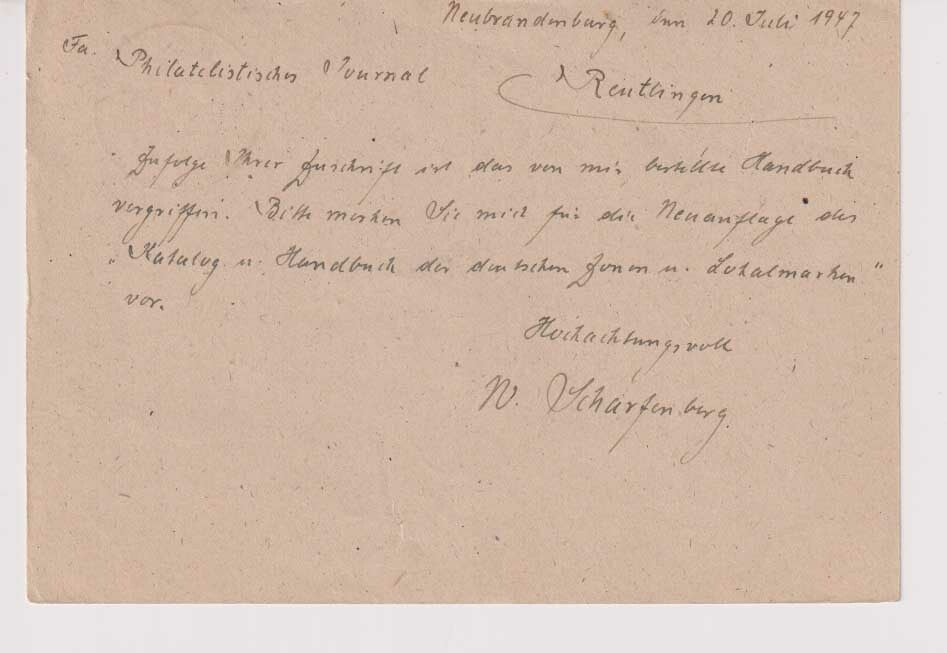 Neubrandenburg, den 20. Juli 1947
Fa.
Philatelistisches Journal
Reutlingen
Zufolge Ihrer Zuschrift ist das von mir bestellte Handbuch
vergriffen. Bitte merken Sie mich für die Neuauflage des
„Katalog u. Handbuch der deutschen Zonen u. Lokalmarken“
vor.
Hochachtungsvoll
W. Scharfenberg